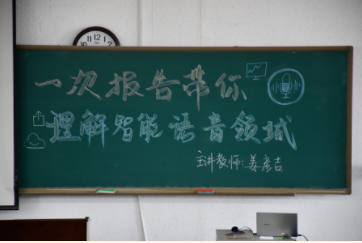 一次报告带你
理解智能语音领域
主讲教师:姜彦吉